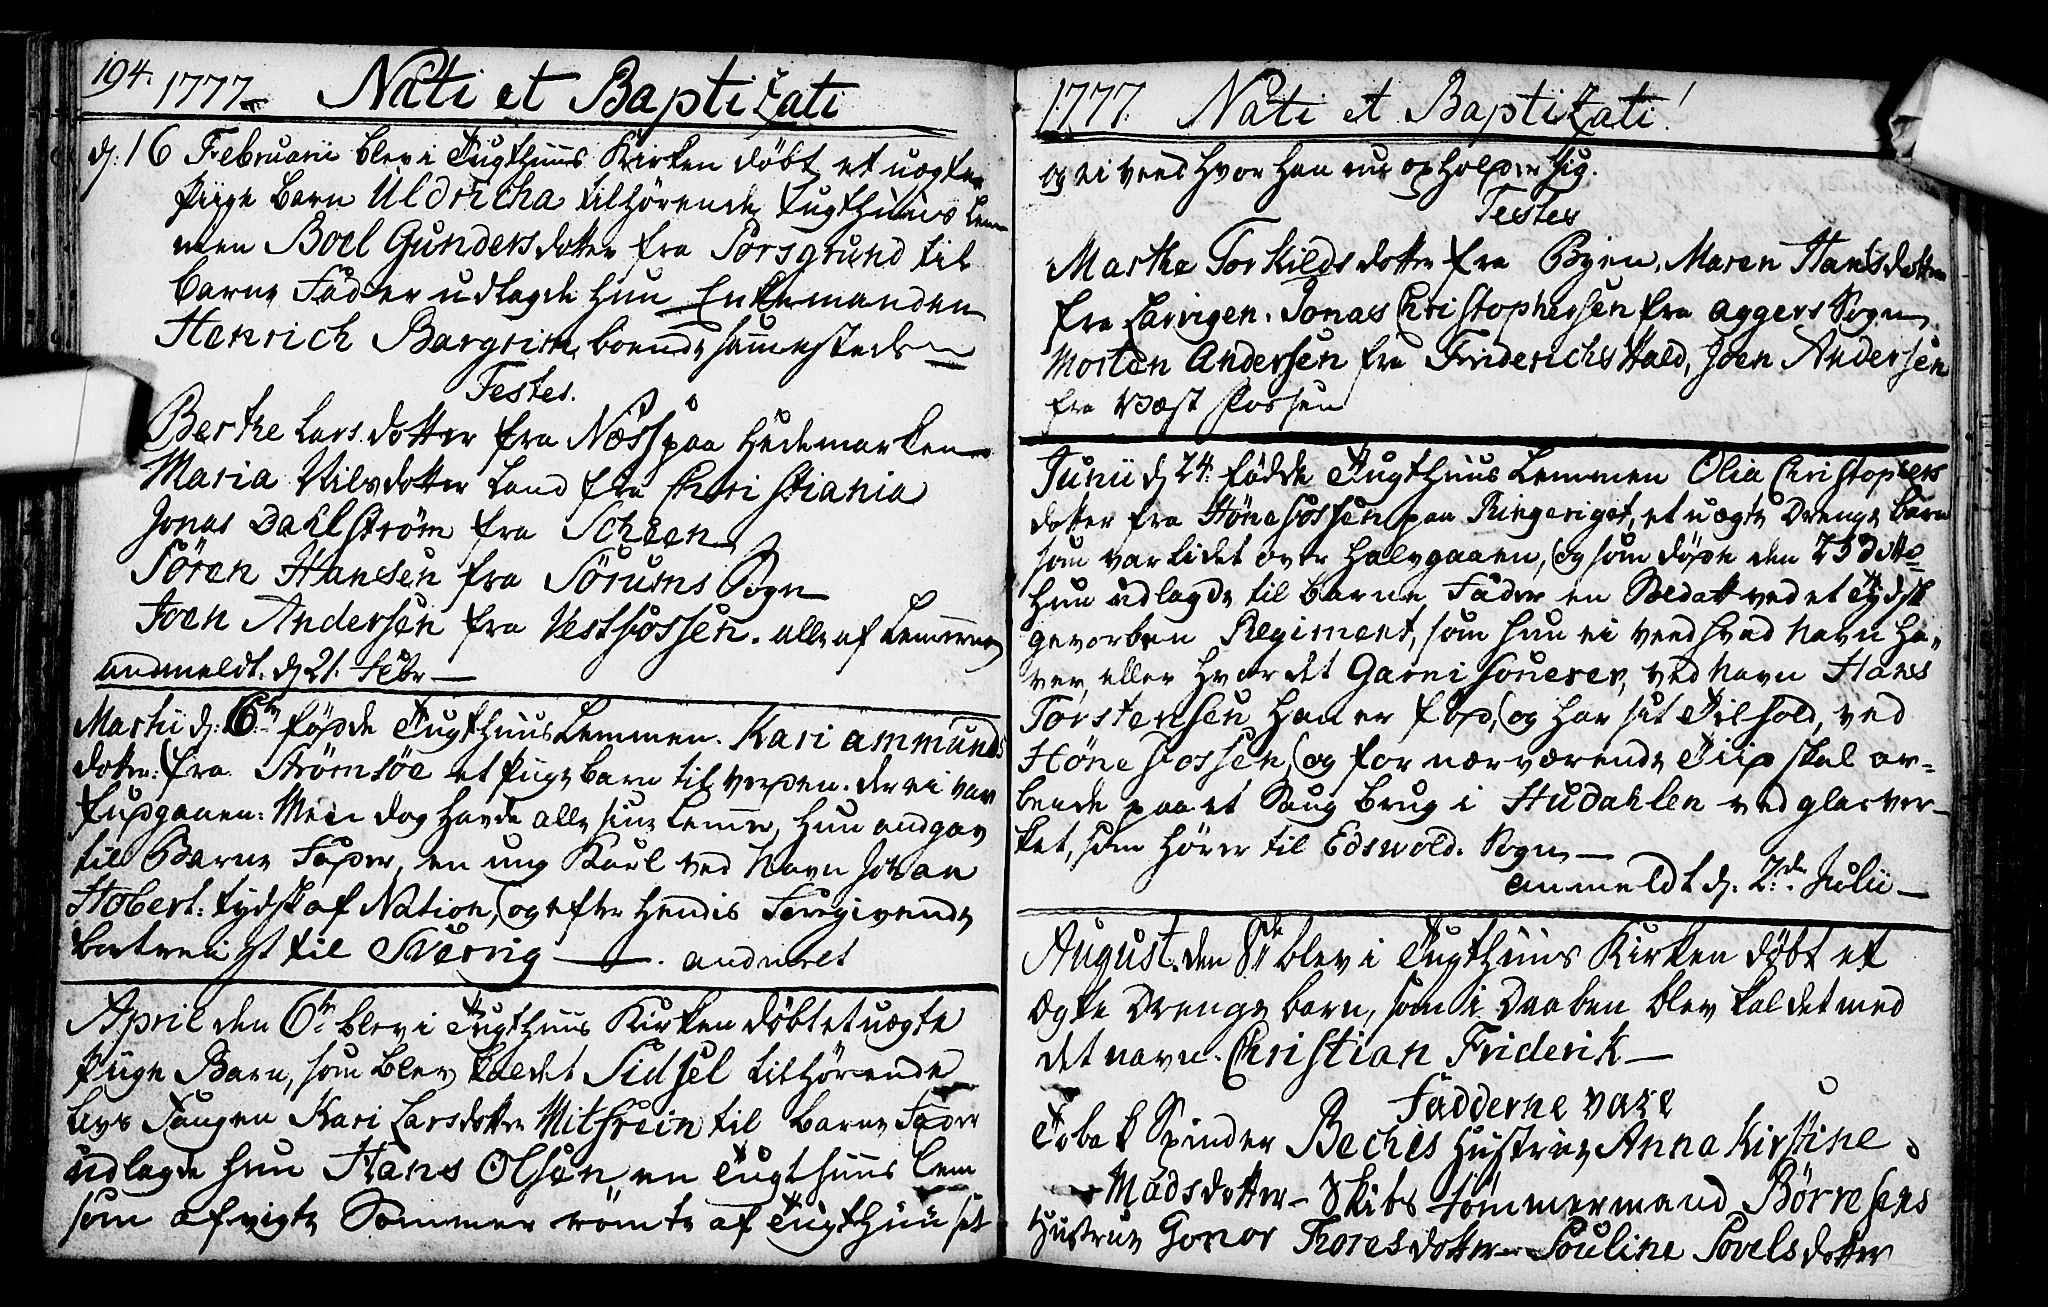 194. 1777. Nati et Baptizati
d: 16 Februarii blev i Tugthuus Kirken döbt et uægte
Piige barn Uldricha tilhörende Tugthuus Lem-
men Boel Gundersdotter fra Porsgrund til
barne Fader udlagde hun Enkemanden
Henrich Bargrim, boende samesteds
Testes.
Berthe Larsdotter fra Næss paa Hedemarken
Maria Nilsdotter Land fra Christiania
Jonas Dahlström fra Scheen
Sören Hansen fra Sörums Sogn
Joen Andersen fra Vestfossen. alle af Lemmerne
andmeldt. d 21. Febr
Martii d: 6te födde Tugthuus Lemmen. Kari Ammunds
dotter: fra Strömsöe et Pige barn til verden. der ei var
fuldgaaen: Men dog havde alle sine Lemer, hun andgav
til Barne Fader, en ung Karl ved Navn Johan
Hobert: tydsk af Nation, og efter hendis Foregivende
bortreigst til Sverrig — . andmeldt
April den 6te blev i Tugthuus Kirken döbt et uægte
Pige Barn, som blev kaldet Sidsel tilhörende
Kari Larsdotter til barne Fader
udlagde hun Hans Olsen, en Tugthuus Lem
som afvigte Sommer römte af Tugthuuset
1777. Nati et Baptizati!
og ei veed hvor han nu opholder sig.
Testes
Marthe Torkildsdotter fra Byen, Maren Hansdotter
fra Larvigen. Jonas Christophersen fra Aggers Sogn
Morten Andersen fra Friderichshald, Joen Andersen
fra Væstfossen
Junii d 24. födde Tugthuus Lemmen Olia Christophers
dotter fra Hönefossen paa Ringeriget, et uægte Drenge barn
som var lidet over halvgaaen, og som döde den 25 dito
Hun udlagde til barne Fader en Soldat ved et Tydsk
gevorben Regiment, som hun ei veed hvad Navn ha-
ver, eller hvor det Garnisonerer, ved Navn Hans
Torstensen han er föd, og har sit Tilhold, ved
Hönefossen, og for nærværende Tiid skal ar-
beide paa et Saug brug i Hudahlen ved glasver-
ket, som hörer til Edswold. Sogn
anmeldt d. 2de Julii
August. den 8de blev i Tugthuus Kirken döbt et
Ægte Drenge barn, som i Daaben blev kaldet med
det navn. Christian Friderik
Fadderne vare
Tobak Spinder Beches Hustrue Anna Kirstine
Madsdotter - Skibs tömmermand Börresens
Hustrue Gonor Thoresdotter Pouline Povelsdotter